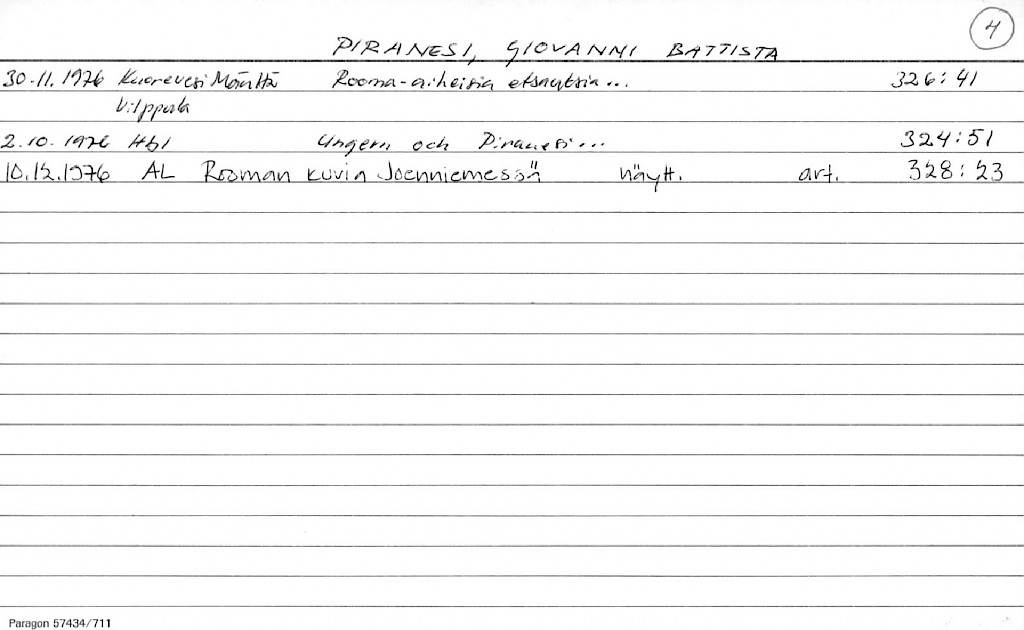 4
PIRANESI, GIOVANNI BATTISTA
30.11.1976 Kuorevesi Mänttä Rooma-aiheisia etsauksia... 326:41
Vilppula
2.10.1976 Hbl Ungern och Piranesi... 324:51
10.12.1976 AL Rooman kuvia Joenniemessä näytt. art. 328:23
Paragon 57434/711